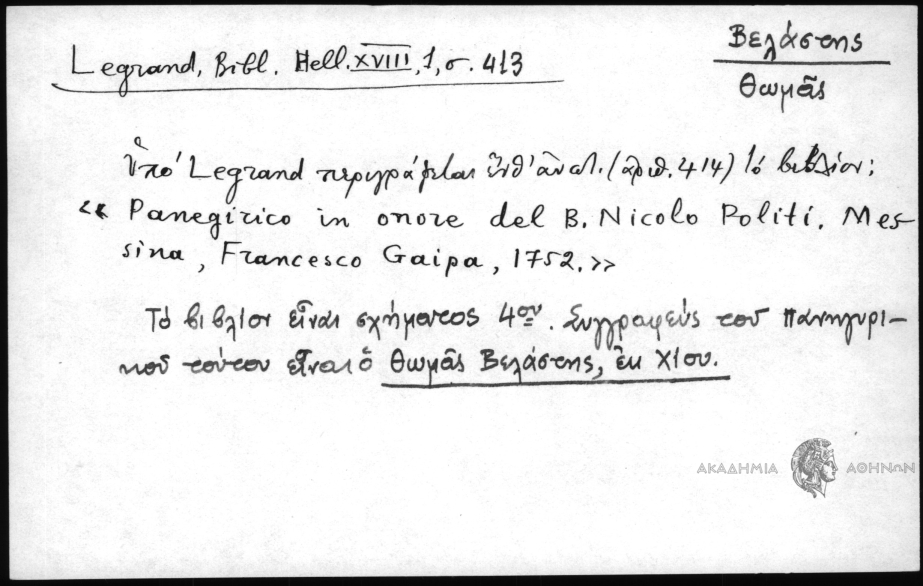 Βελάστης
Θωμᾶς
Legrand, Bibl. Hell. XVIII, 1, σ. 413
Ὑπό Legrand περιγράφεται ἐνθ' ἀνωτ. (ἀριθ. 414) τό βιβλίον:
« Panegirico in onore del B. Nicolo Politi. Mes-
sina, Francesco Gaipa, 1752.»
Τό βιβλίον εἶναι σχήματος 4ου. Συγγραφεύς τοῦ πανηγυρι-
κοῦ τούτου εἶναι ὁ Θωμᾶς Βελάστης, ἐκ Χίου.
ΑΚΑΔΗΜΙΑ ΑΘΗΝΩΝ